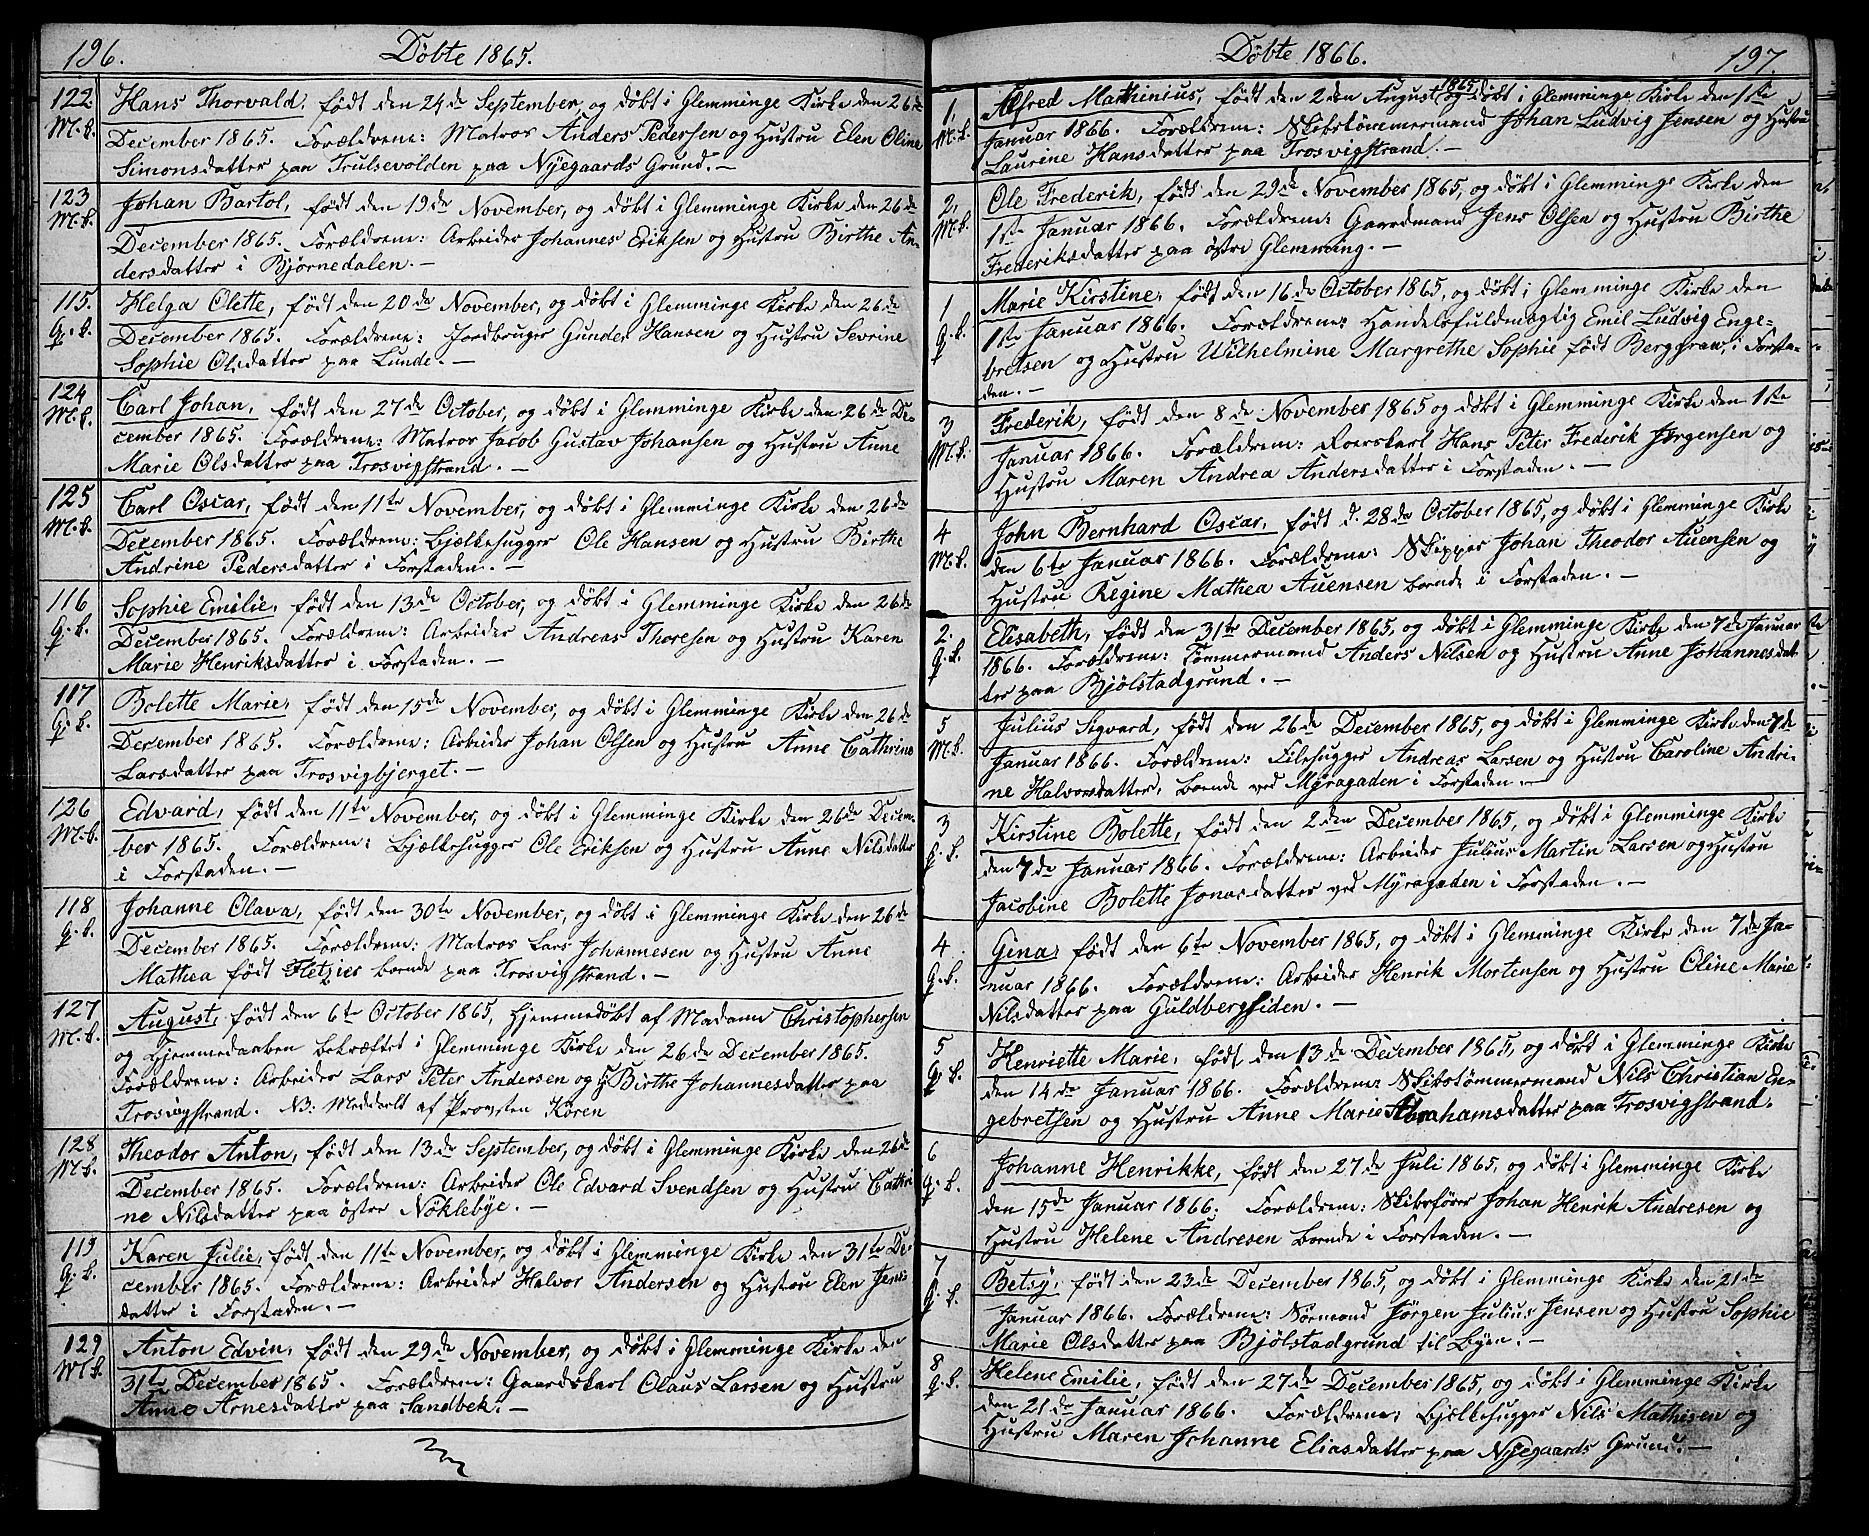 196.
Döbte 1865.
122 M.k. Hans Thorvald, født den 24de September, og døbt i Glemminge Kirke den 26de
December 1865. Forældrene: Matros Anders Pedersen og Hustru Elen Oline
Simonsdatter paa Trulsevolden paa Nyegaards Grund. —
123 M.k. Johan Bartol, født den 19de November, og døbt i Glemminge Kirke den 26de
December 1865. Forældrene: Arbeider Johannes Eriksen og Hustru Birthe An-
dersdatter i Bjørnedalen. —
115. Q.k. Helga Olette, født den 20de November, og døbt i Glemminge Kirke den 26de
December 1865. Forældrene: Jordbruger Gunder Hansen og Hustru Sevrine
Sophie Olsdatter paa Lunde. —
124 M.k. Carl Johan, født den 27de October, og døbt i Glemminge Kirke den 26de De-
cember 1865. Forældrene: Matros Jacob Gustav Johansen og Hustru Anne
Marie Olsdatter paa Trosvigstrand. —
125 M.k. Carl Oscar, født den 11te November, og døbt i Glemminge Kirke den 26de
December 1865. Forældrene: Bjælkehugger Ole Hansen og Hustru Birthe
Andrine Pedersdatter i Forstaden. —
116 Q.k. Sophie Emilie, født den 13de October, og døbt i Glemminge Kirke den 26de
December 1865. Forældrene: Arbeider Andreas Thoresen og Hustru Karen
Marie Henriksdatter i Forstaden. —
117 Q.k. Bolette Marie, født den 15de November, og døbt i Glemminge Kirke den 26de
December 1865. Forældrene: Arbeider Johan Olsen og Hustru Anne Cathrine
Larsdatter paa Trosvigbjerget. —
126 M.k. Edvard, født den 11te November, og døbt i Glemminge Kirke den 26de Decem-
ber 1865. Forældrene: Bjælkehugger Ole Eriksen og Hustru Anne Nilsdatter
i Forstaden. —
118 Q.k. Johanne Olava, født den 30te November, og døbt i Glemminge Kirke den 26de
December 1865. Forældrene: Matros Lars Johannesen og Hustru Anne
Mathea født Fletzier boende paa Trosvigstrand. —
127 M.k. August, født den 6te October 1865, hjemmedøbt af Madame Christophersen
og Hjemmedaaben bekræftet i Glemminge Kirke den 26de December 1865.
Forældrene: Arbeider Lars Peter Andersen og H. Birthe Johannesdatter paa
Trosvigstrand. NB: Meddeelt af Provsten Koren
128 M.k. Theodor Anton, født den 13de September, og døbt i Glemminge Kirke den 26de
December 1865. Forældrene: Arbeider Ole Edvard Svendsen og Hustru Cathri
ne Nilsdatter paa østre Nöklebye. —
119 Q.k. Karen Julie, født den 11te November, og døbt i Glemminge Kirke den 31te De-
cember 1865. Forældrene: Arbeider Halvor Andersen og Hustru Elen Jens-
datter i Forstaden. —
129 M.k. Anton Edvin, født den 29de November, og døbt i Glemminge Kirke den
31te December 1865. Forældrene: Gaardskarl Olaus Larsen og Hustru
Anne Arnesdatter paa Sandbek. —
Döbte 1866.
197.
1, M.k. Alfred Mathinius, født den 2den August 1865 og døbt i Glemminge Kirke den 1ste
Januar 1866. Forældrene: Skibstömmermand Johan Ludvig Jensen og Hustru
Laurine Hansdatter paa Trosvigstrand. —
2, M.k. Ole Frederik, født den 29de November 1865, og døbt i Glemminge Kirke den
1ste Januar 1866. Forældrene: Gaardmand Jens Olsen og Hustru Birthe
Frederiksdatter paa østre Glemming. —
1 Q.k. Marie Kirstine, født den 16de October 1865, og døbt i Glemminge Kirke den
1ste Januar 1866. Forældrene: Handelsfuldmægtig Emil Ludvig Enge-
bretsen og Hustru Wilhelmine Margrethe Sophie født Berggraw, i Forsta-
den. —
3 M.k. Frederik, født den 8de November 1865 og døbt i Glemminge Kirke den 1ste
Januar 1866. Forældrene: Roerskarl Hans Peter Frederik Jørgensen og
Hustru Maren Andrea Andersdatter i Forstaden. —
4 M.k. John Bernhard Oscar, født d. 28de October 1865, og døbt i Glemminge Kirke
den 6te Januar 1866. Forældrene: Skipper Johan Theodor Auensen og
Hustru Regine Mathea Auensen boende i Forstaden. —
2. Q.k. Elisabeth, født den 31te December 1865, og døbt i Glemminge Kirke den 7de Januar
1866. Forældrene: Tømmermand Anders Nilsen og Hustru Anne Johannesdat
ter paa Bjölstadgrund. —
5 M.k. Julius Sigvard, født den 26de December 1865, og døbt i Glemminge Kirke den 7de
Januar 1866. Forældrene: Filehugger Andreas Larsen og Hustru Caroline Andri-
ne Halvorsdatter, boende ved Myragaden i Forstaden. —
3 Q.k. Kirstine Bolette, født den 2den December 1865, og døbt i Glemminge Kirke
den 7de Januar 1866. Forældrene: Arbeider Julius Martin Larsen og Hustru
Jacobine Bolette Jonasdatter ved Myragaden i Forstaden. —
4 Q.k. Gina, født den 6te November 1865, og døbt i Glemminge Kirke den 7de Ja-
nuar 1866. Forældrene: Arbeider Henrik Mortensen og Hustru Oline Marie
Nilsdatter paa Guldbergsiden. —
5 Q.k. Henriette Marie, født den 13de December 1865, og døbt i Glemminge Kirke
den 14de Januar 1866. Forældrene: Skibstömmermand Nils Christian En-
gebretsen og Hustru Anne Marie Abrahamsdatter paa Trosvigstrand.
6 Q.k. Johanne Henrikke, født den 27de Juli 1865, og døbt i Glemminge Kirke
den 15de Januar 1866. Forældrene: Skibsfører Johan Henrik Andresen og
Hustru Helene Andresen boende i Forstaden. —
7 Q.k. Betsy, født den 23de December 1865, og døbt i Glemminge Kirke den 21de
Januar 1866. Forældrene: Sømand Jørgen Julius Jensen og Hustru Sophie
Marie Olsdatter paa Bjölstadgrund til Byen. —
8 Q.k. Helene Emilie, født den 27de December 1865, og døbt i Glemminge Kirke
den 21de Januar 1866. Forældrene: Bjælkehugger Nils Mathisen og
Hustru Maren Johanne Eliasdatter paa Nyegaards Grund. —